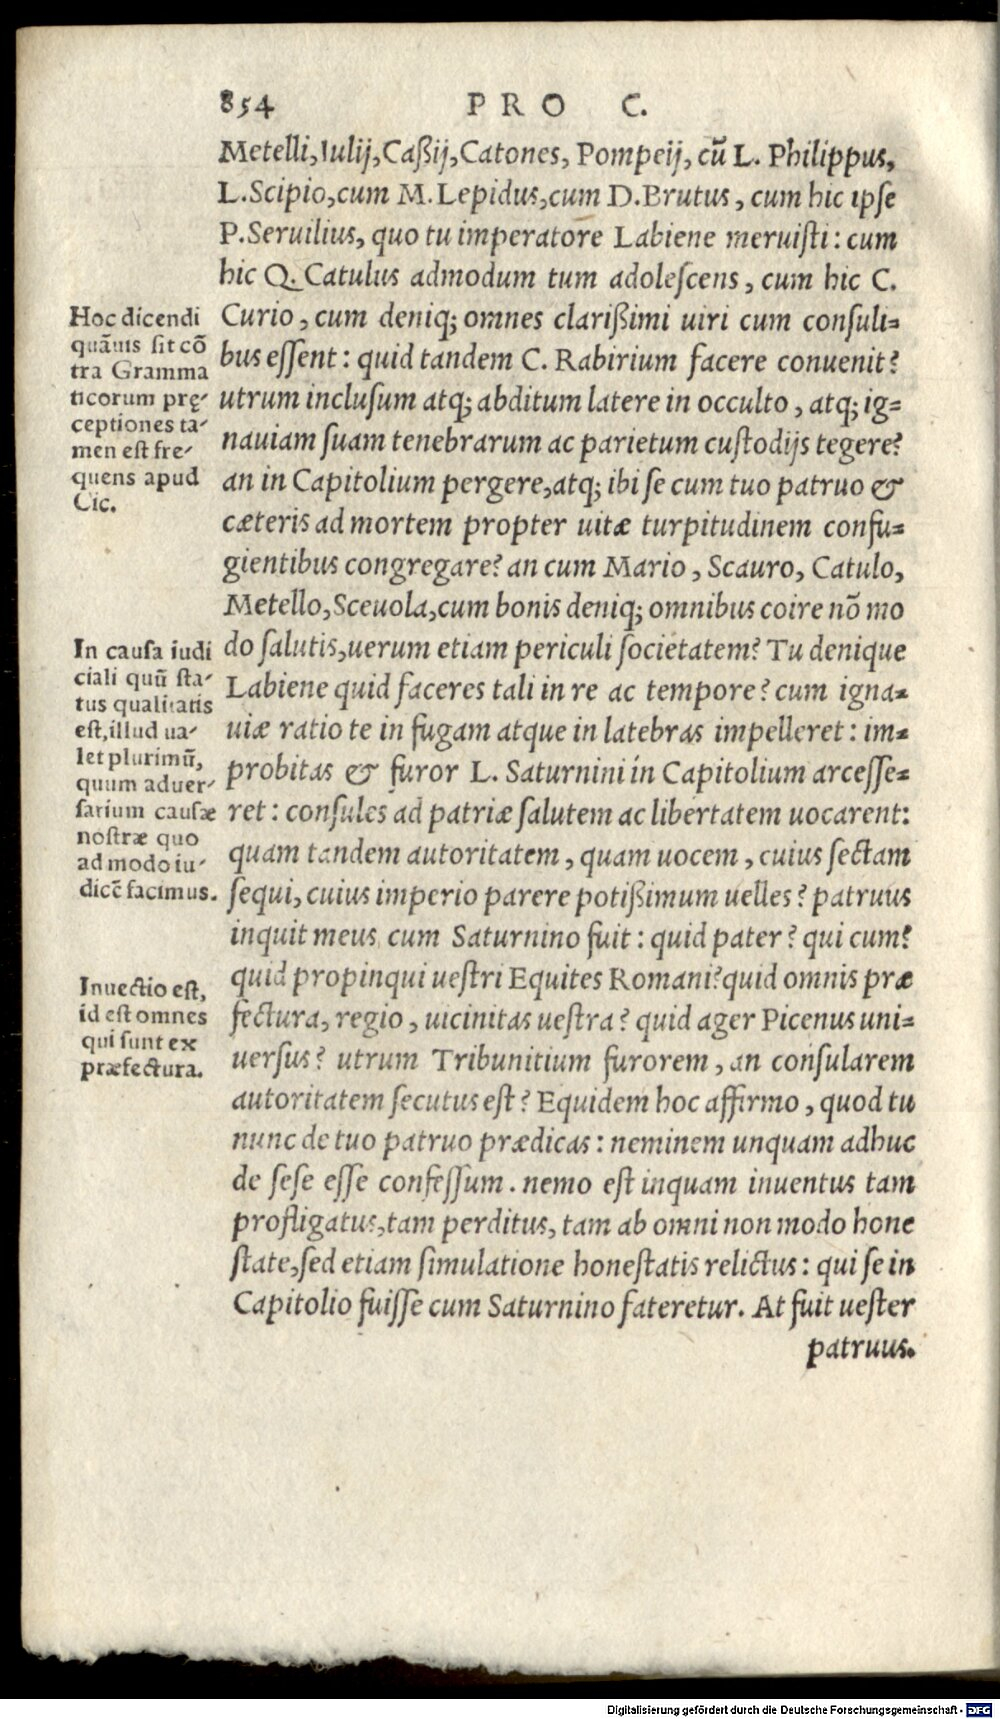 854 PRO C.
Metelli, Iulij, Caßij, Catones, Pompeij, cũ L. Philippus,
L. Scipio, cum M. Lepidus, cum D. Brutus, cum hic ipſe
P. Seruilius, quo tu imperatore Labiene meruiſti: cum
hic Q. Catulus admodum tum adoleſcens, cum hic C.
Curio, cum deniq; omnes clarißimi uiri cum conſuli=
bus eſſent: quid tandem C. Rabirium facere conuenit?
utrum incluſum atq; abditum latere in occulto, atq; ig=
nauiam ſuam tenebrarum ac parietum cuſtodijs tegere?
an in Capitolium pergere, atq; ibi ſe cum tuo patruo &
cæteris ad mortem propter uitæ turpitudinem confu=
gientibus congregare? an cum Mario, Scauro, Catulo,
Metello, Sceuola, cum bonis deniq; omnibus coire nõ mo
do ſalutis, uerum etiam periculi ſocietatem? Tu denique
Labiene quid faceres tali in re ac tempore? cum igna=
uiæ ratio te in fugam atque in latebras impelleret: im=
probitas & furor L. Saturnini in Capitolium arceſſe=
ret: conſules ad patriæ ſalutem ac libertatem uocarent:
quam tandem autoritatem, quam uocem, cuius ſectam
ſequi, cuius imperio parere potißimum uelles? patruus
inquit meus cum Saturnino fuit: quid pater? qui cum?
quid propinqui ueſtri Equites Romani? quid omnis præ
fectura, regio, uicinitas ueſtra? quid ager Picenus uni=
uerſus? utrum Tribunitium furorem, an conſularem
autoritatem ſecutus eſt? Equidem hoc affirmo, quod tu
nunc de tuo patruo prædicas: neminem unquam adhuc
de ſeſe eſſe confeſſum. nemo eſt inquam inuentus tam
profligatus, tam perditus, tam ab omni non modo hone
ſtate, ſed etiam ſimulatione honeſtatis relictus: qui ſe in
Capitolio fuiſſe cum Saturnino fateretur. At fuit ueſter
patruus.
Hoc dicendi
quãuis ſit cõ
tra Gramma
ticorum prę-
ceptiones ta-
men eſt fre-
quens apud
Cic.
In cauſa iudi
ciali quũ ſta-
tus qualitatis
eſt, illud ua-
let plurimũ,
quum aduer-
ſarium cauſæ
noſtræ quo
ad modo iu-
dicẽ facimus.
Inuectio eſt,
id eſt omnes
qui ſunt ex
præfectura.
Digitalisierung gefördert durch die Deutsche Forschungsgemeinschaft - DFG